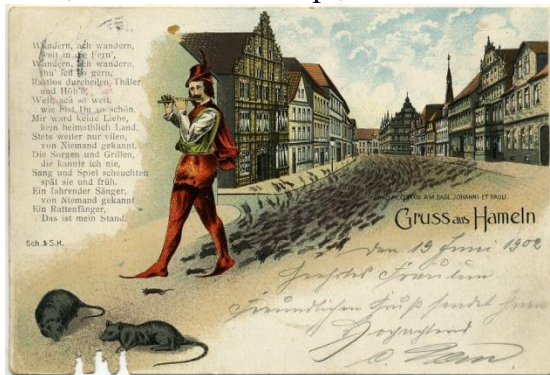 Wandern, ach wandern,
weit in die Fern',
Wandern, ach wandern,
thu' ich so gern,
Rastlos durcheilen, Thäler
und Höh'n,
Weit, ach so weit,
wie bist Du so schön.
Mir ward keine Liebe,
kein heimathlich Land.
Stets weiter nur eilen,
von Niemand gekannt.
Die Sorgen und Grillen,
die kannte ich nie,
Sang und Spiel scheuchten
spät sie und früh.
Ein fahrender Sänger,
von Niemand gekannt
Ein Rattenfänger,
Das ist mein Stand.
Sch. & S.H.
AM DAGE JOHANNI ET PAULI.
Gruss aus Hameln
den 19 Juni 1902
Geehrtes Fräulein
Freundlichen Gruß sendet Ihnen
Hochachtend